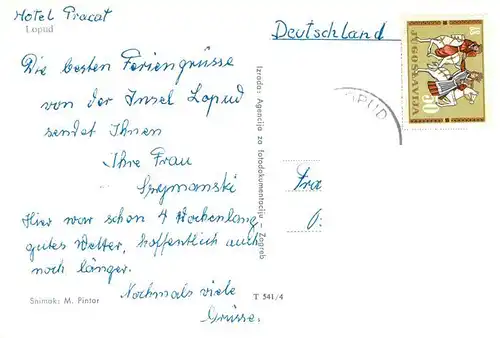 Hotel Pracat
Lopud
Die besten Feriengrüsse
von der Insel Lopud
sendet Ihnen
Ihre Frau
Szymanski
Hier war schon 4 Wochenlang
gutes Wetter, hoffentlich auch
noch länger.
Nochmals viele
Grüsse.
Snimak: M. Pintar
T 541/4
Izrada: Agencija za fotodokumentaciju — Zagreb
Deutschland
JUGOSLAVIJA
30
OPUD
Fra